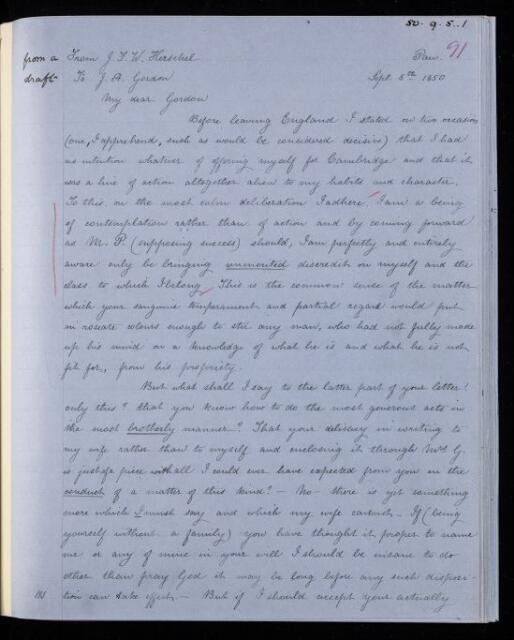 50.9.5.1
91
from a From J. F. W. Herschel Pau.
draft To J. A. Gordon Sept. 5th 1850
My dear Gordon
Before leaving England I stated on two occasions
(one, I apprehend, such as would be considered decisive) that I had
no intention whatever of offering myself for Cambridge and that it
was a line of action altogether alien to my habits and character.
To this, on the most calm deliberation I adhere. I am a being
of contemplation rather than of action and by coming forward
as M. P. (supposing success) should, I am perfectly and entirely
aware only be bringing unmerited discredit on myself and the
class to which I belong. This is the common sense of the matter
which your sanguine temperament and partial regard would put
in roseate colours enough to stir any man, who had not fully made
up his mind on a knowledge of what he is and what he is not
fit for, from his propriety.
But what shall I say to the latter part of your letter!
only this? that you know how to do the most generous acts in
the most brotherly manner? That your delicacy in writing to
my wife rather than to myself and enclosing it through Mrs G.
is just of a piece with all I could ever have expected from you in the
conduct of a matter of this kind? - No - there is yet something
more which I must say and which my wife cannot. - If (being
yourself without a family) you have thought it proper to name
me or any of mine in your will I should be insane to do
other than pray God it may be long before any such disposi-
tion can take effect. - But if I should accept your actually